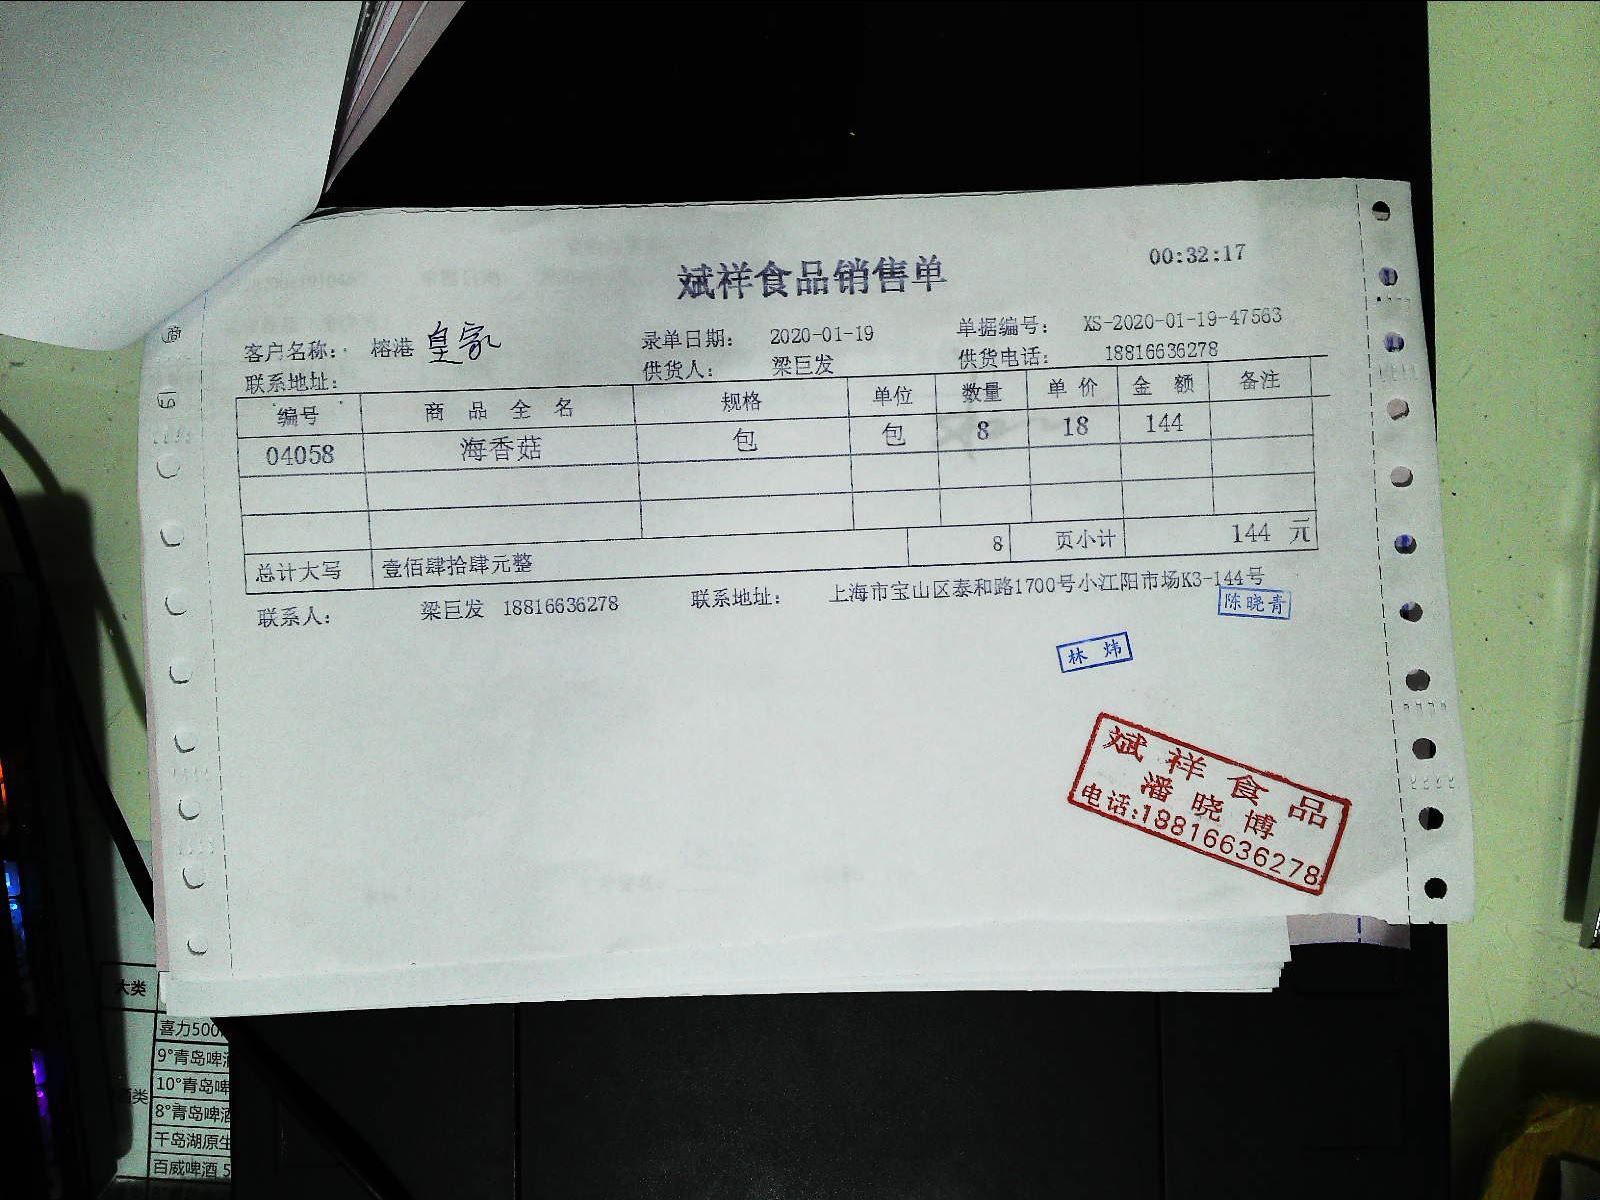 斌祥食品销售单
00:32:17
客户名称: 榕港 皇家 录单日期: 2020-01-19 单据编号: XS-2020-01-19-47563
联系地址: 供货人: 梁巨发 供货电话: 18816636278
编号 商品全名 规格 单位 数量 单价 金额 备注
04058 海香菇 包 包 8 18 144
总计大写 壹佰肆拾肆元整 8 页小计 144 元
联系人: 梁巨发 18816636278 联系地址: 上海市宝山区泰和路1700号小江阳市场K3-144号
陈晓青
林炜
斌祥食品
潘晓博
电话:18816636278
大类
喜力500
9°青岛啤酒
10°青岛啤
8°青岛啤酒
千岛湖原生
百威啤酒 5